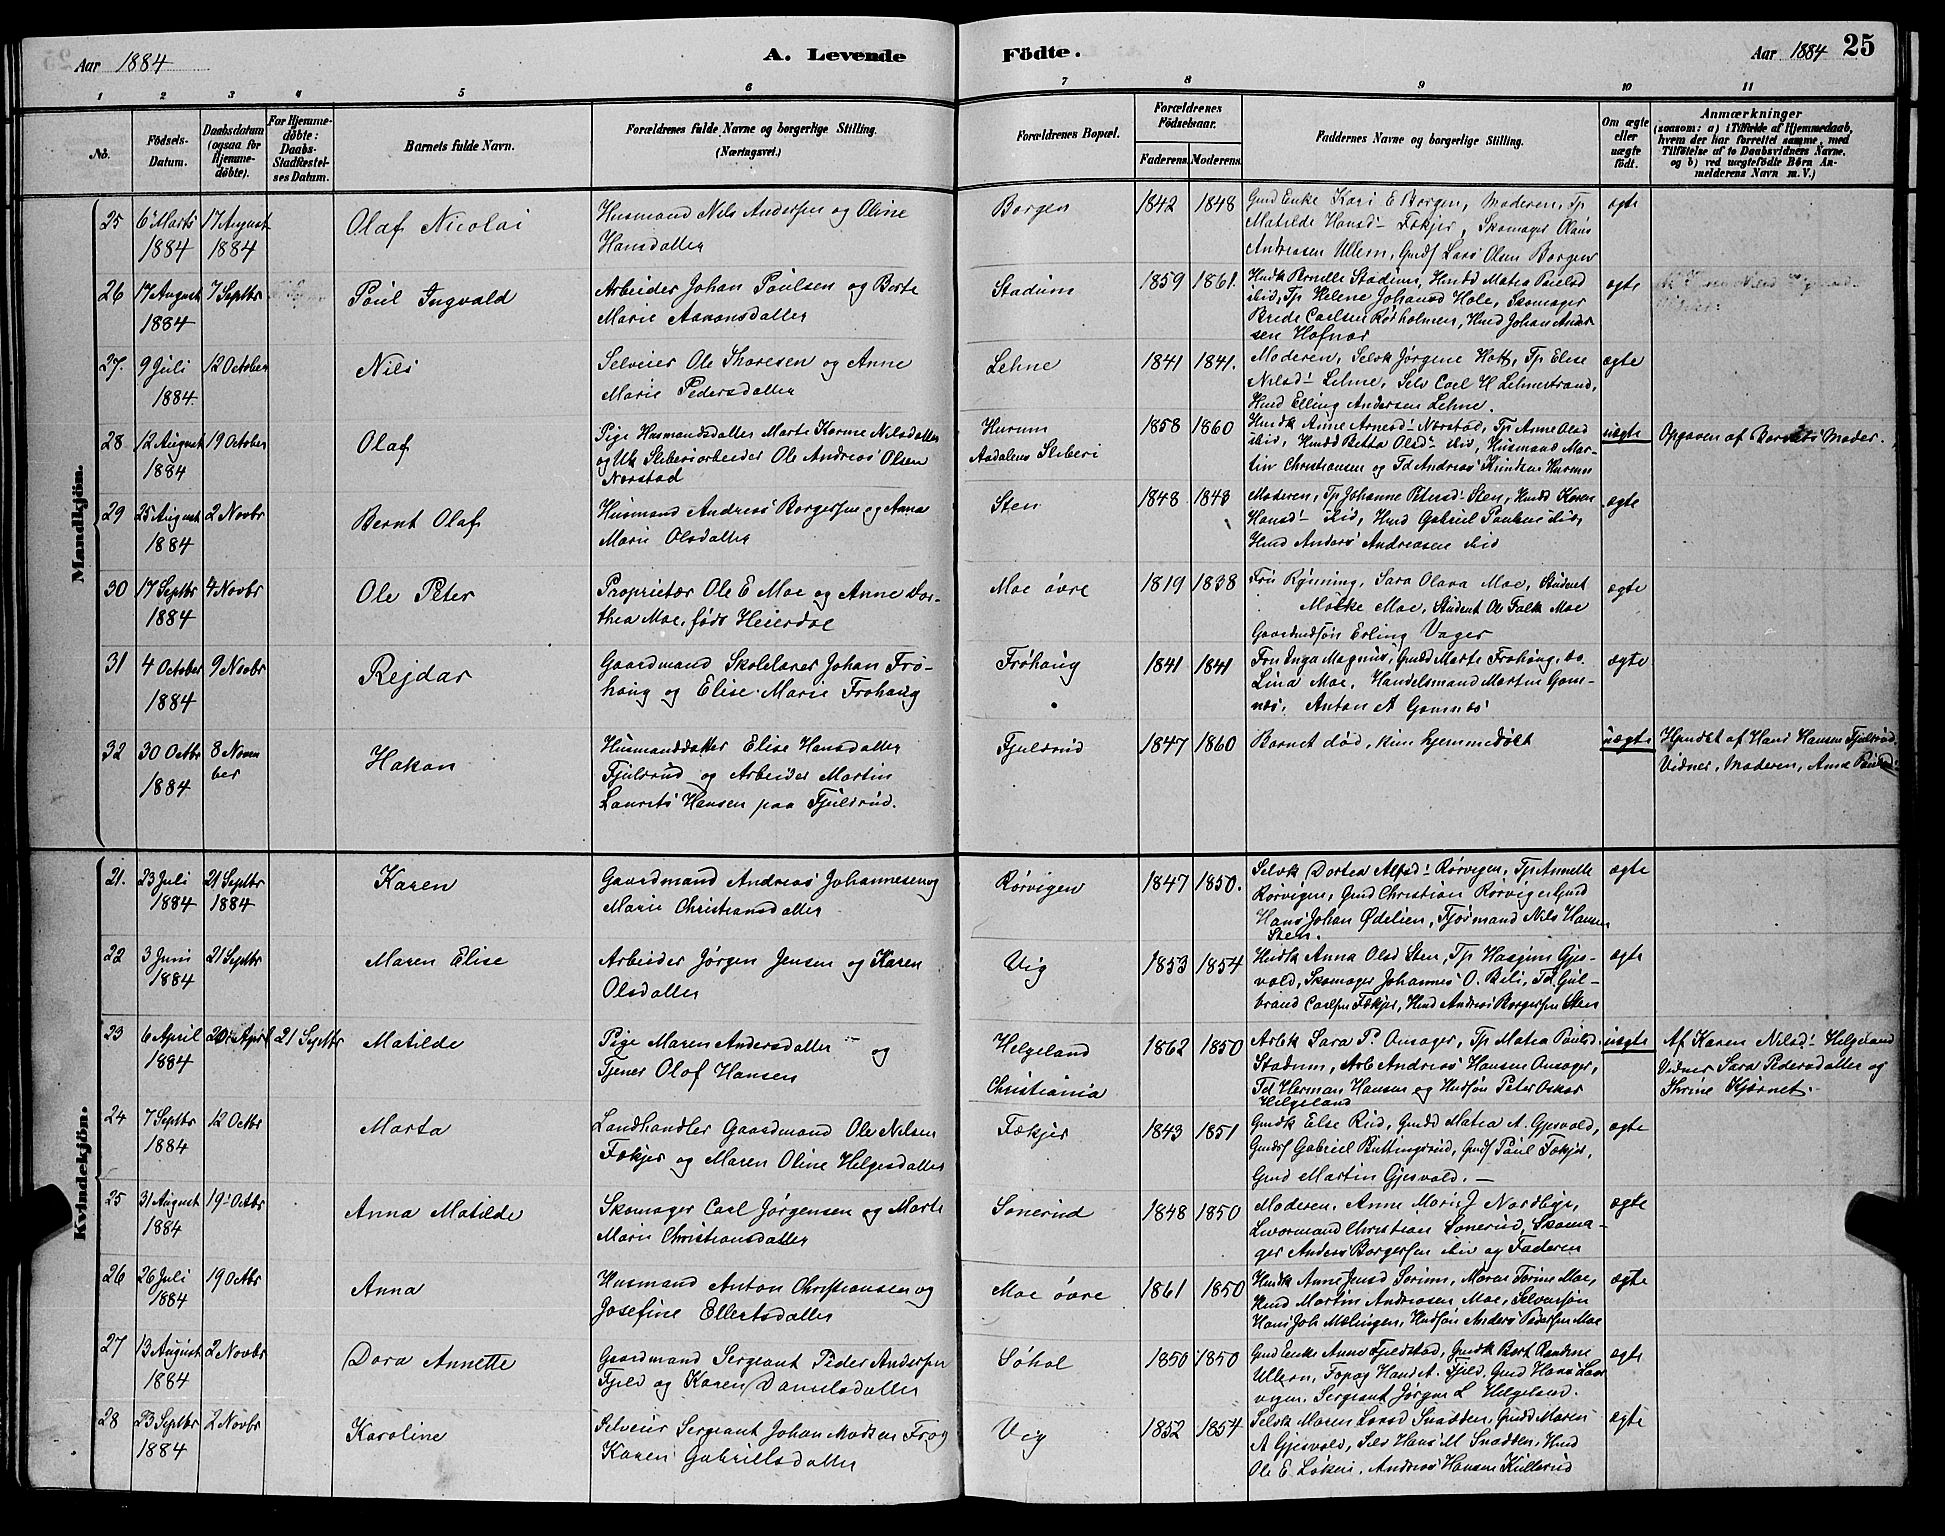 Aar 1884
A. Levende
Fødte.
Aar 1884 25
1 2 3 4 5 6 7 8 9 10 11
No.
Fødsels-Datum.
Daabsdatum (ogsaa for Hjemme-døbte).
For Hjemme-døbte: Daabs-Stadfæstel-ses Datum.
Barnets fulde Navn.
Forældrenes fulde Navne og borgerlige Stilling. (Næringsvei.)
Forældrenes Bopæl.
Forældrenes Fødselsaar.
Faderens. Moderens.
Faddernes Navne og borgerlige Stilling.
Om ægte eller uægte født.
Anmærkninger (saasom: a) i Tilfælde af Hjemmedaab, hvem der har forrettet samme, med Tilføielse af to Daabsvidners Navne, og b) ved uægtefødte Børn An-melderens Navn m. V.)
Mandkjön.
25 6 Marts 1884 17 August 1884 Olaf Nicolai
Husmand Nils Andersen og Oline
Hansdatter
Borgen 1842 1848
Gmd Enke Kari E Borgen, Moderen, Tp
Matilde Hansd- Fokjer, Skomager Olaus
Andreasen Ullern, Gmds Lars Olsen Borgen
ægte
26 17 August 1884 7 Septbr Paul Ingvald
Arbeider Johan Paulsen og Berte
Marie Aaronsdatter
Stadum 1859 1861.
Hmdk Pernille Stadum, Hmdd Matea Paulsd
ibid, Tp Helene Johansd Hole, Skomager
Brede Carlsen Rørholmen, Hmd Johan Ander
sen Hafnor
ægte
27. 9 Juli 1884. 12 October Nils
Selveier Ole Thoresen og Anne
Marie Pedersdatter
Lehne 1841 1841.
Moderen, Selvk Jørgene Hatt, Tp Elise
Nilsd- Lehne, Selv Carl H Lehnestrand,
Hmd Elling Andersen Lehne.
ægte
28. 12 August 1884 19 October Olaf
Pige Husmandsdatter Marte Karine Nilsdatter
og Uk Sliberiarbeider Ole Andreas Olsen
Norstad
Hurum
Aadalens Sliberi
1858 1860
Hmdk Anne Arnesd- Norstad, Tp Anne Olsd
ibid, Hmdd Betta Olsd- ibid, Husmand Mar-
tin Christiansen og Td Andreas Knudsen Hurum
uægte Opgaven af Barnets Moder.
29 25 August 1884 2 Novbr Bernt Olaf
Husmand Andreas Borgersen og Anna
Marie Olsdatter
Sten 1848 1843
Moderen, Tp Johanne Petersd- Sten, Hmdd Karen
Hansd- ibid, Hmd Gabriel Paulsen ibid,
Hmd Anders Andreasen ibid
ægte
30 17 Septbr 1884 4 Novbr Ole Peter
Proprietær Ole E Moe og Anne Dor-
thea Moe, født Heierdal
Moe øvre 1819 1838
Fru Rynning, Sara Olava Moe, Student
Moltke Moe, Student Ole Falk Moe
Gaardmdsøn Erling Vager
ægte
31 4 October 1884 9 Novbr Rejdar
Gaardmand Skolelærer Johan Frø-
haug og Elise Marie Frøhaug
Frøhaug 1841 1841
Fru Inga Magnus, Gmdd Marte Frøhaug, do.
Lina Moe, Handelsmand Martin Gom-
næs, Anton A Gomnæs
ægte
32 30 Octbr 1884 8 Novem ber Hakon
Husmanddatter Elise Hansdatter
Fjulsrud og Arbeider Martin
Laurits Hansen paa Fjulsrud.
Fjulsrud 1847 1860
Barnet død, kun hjemmedøbt
uægte
Hjmdbt af Hans Hansen Fjulsrud.
Vidner, Moderen, Anne Paulsd-
Kvindekjön.
21. 23 Juli 1884 21 Septbr 1884 Karen
Gaardmand Andreas Johannesen og
Marie Christiansdatter
Rørvigen 1847 1850.
Selvk Dortea Alfsd- Rørvigen, Tp Annette
Rørvigen, Gmd Christian Rørvigen, Gmd
Hans Johan Ødelien, Fjosmand Nils Hansen
Sten.
ægte
22 3 Juni 1884 21 Septbr Maren Elise
Arbeider Jørgen Jensen og Karen
Olsdatter
Vig 1853 1854
Hmdk Anna Olsd Sten, Tp Hasgina Gjes-
vold, Skomager Johannes O. Bili, Td Gul-
brand Carlsen Fekjer, Hmd Andreas Borgersen Sten
ægte
23 6 April 1884 20 April 21 Septbr Matilde
Pige Maren Andersdatter og
Tjener Olaf Hansen
Helgeland
Christiania
1862 1850
Arbk Sara P. Onsager, Tp Matea Paulsd.
Stadum, Arb Andreas Hansen Onsager,
Td Herman Hansen og Hmdsøn Peter Oskar
Helgeland
uægte
Af Karen Nilsd- Helgeland
Vidner Sara Pedersdatter og
Thrine Kjørnet.
24 7 Septbr 1884 12 Octbr Marta
Landhandler Gaardmand Ole Nilsen
Fekjer og Maren Oline Helgesdatter
Fekjer 1843 1851
Gmdk Else Rud, Gmdd Matea A. Gjesvold,
Gmds Gabriel Buttingsrud, Gmds Paul Fekjer,
Gmd Martin Gjesvold.
ægte
25 31 August 1884 19 Octbr Anna Matilde
Skomager Carl Jørgensen og Marte
Marie Christiansdatter
Sønerud 1848 1850
Moderen, Anne Marie J Nordbye,
Lvormand Christian Sønerud, Skoma-
ger Anders Borgersen ibid og Faderen
ægte
26 26 Juli 1884 19 Octbr Anna
Husmand Anton Christiansen og
Josefine Ellertsdatter
Moe øvre 1861 1850
Hmdk Anne Jensd Sørum, Maren Torine Moe,
Hmd Martin Andreasen Moe, Selveiersøn
Hans Joh Mælingen, Hmdsøn Anders Pedersen Moe
ægte
27 13 August 1884 2 Novbr Dora Annette
Gaardmand Sergeant Peder Andersen
Fjeld og Karen Danielsdatter
Søhol 1850 1850
Gmd Enke Anne Fjeldstad, Gmdk Bert Randine
Ullern, Tp og Hand A. Fjeld, Gmd Hans Laar
vigen, Sergeant Jørgen L Helgeland.
ægte
28 23 Septbr 1884 2 Novbr Karoline
Selveier Sergeant Johan Madsen Frog
Karen Gabrielsdatter
Vig 1852 1854
Selvk Maren Larsd Snadden, Gmdd Maren
A Gjesvold, Selv Hans M Snadden, Hmd
Ole E. Løken, Andreas Hansen Kullerud
ægte